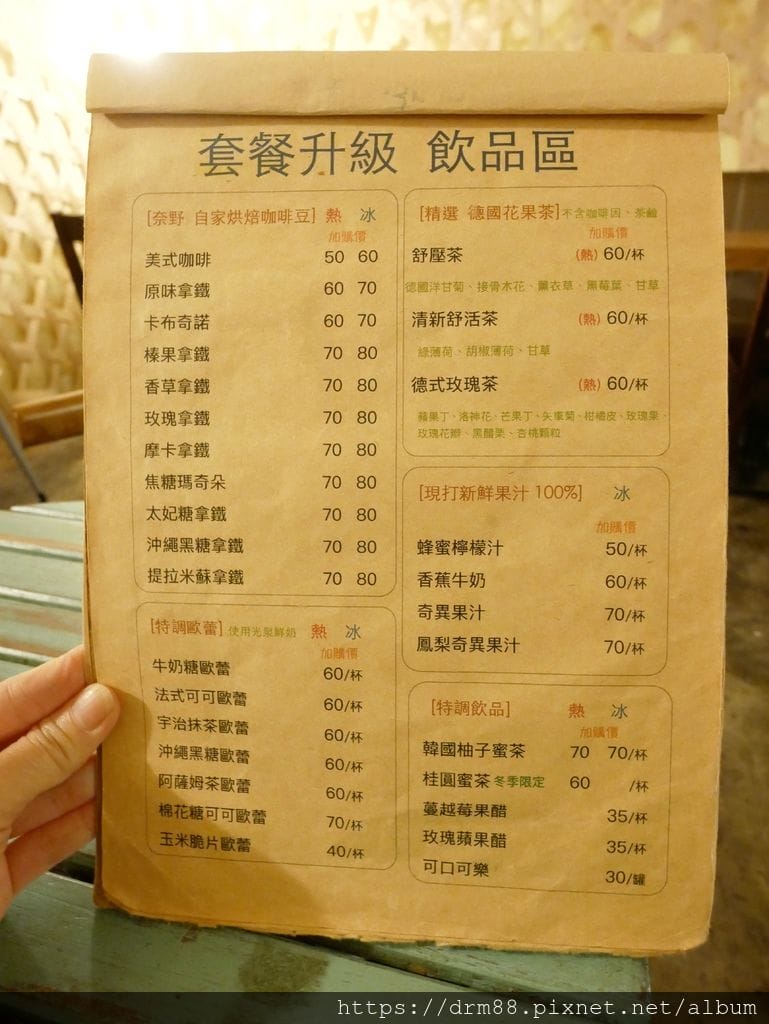 套餐升級 飲品區
[奈野 自家烘焙咖啡豆] 熱 冰
加購價
美式咖啡 50 60
原味拿鐵 60 70
卡布奇諾 60 70
榛果拿鐵 70 80
香草拿鐵 70 80
玫瑰拿鐵 70 80
摩卡拿鐵 70 80
焦糖瑪奇朵 70 80
太妃糖拿鐵 70 80
沖繩黑糖拿鐵 70 80
提拉米蘇拿鐵 70 80
[特調歐蕾] 使用光泉鮮奶 熱 冰
加購價
牛奶糖歐蕾 60/杯
法式可可歐蕾 60/杯
宇治抹茶歐蕾 60/杯
沖繩黑糖歐蕾 60/杯
阿薩姆茶歐蕾 60/杯
棉花糖可可歐蕾 70/杯
玉米脆片歐蕾 40/杯
[精選 德國花果茶] 不含咖啡因、茶鹼
加購價
舒壓茶 (熱) 60/杯
德國洋甘菊、接骨木花、薰衣草、黑莓葉、甘草
清新舒活茶 (熱) 60/杯
綠薄荷、胡椒薄荷、甘草
德式玫瑰茶 (熱) 60/杯
蘋果丁、洛神花、芒果丁、矢車菊、柑橘皮、玫瑰果、
玫瑰花瓣、黑醋栗、杏桃顆粒
[現打新鮮果汁 100%] 冰
加購價
蜂蜜檸檬汁 50/杯
香蕉牛奶 60/杯
奇異果汁 70/杯
鳳梨奇異果汁 70/杯
[特調飲品] 熱 冰
加購價
韓國柚子蜜茶 70 70/杯
桂圓蜜茶 冬季限定 60 /杯
蔓越莓果醋 35/杯
玫瑰蘋果醋 35/杯
可口可樂 30/罐
https://drm88.pixnet.net/album